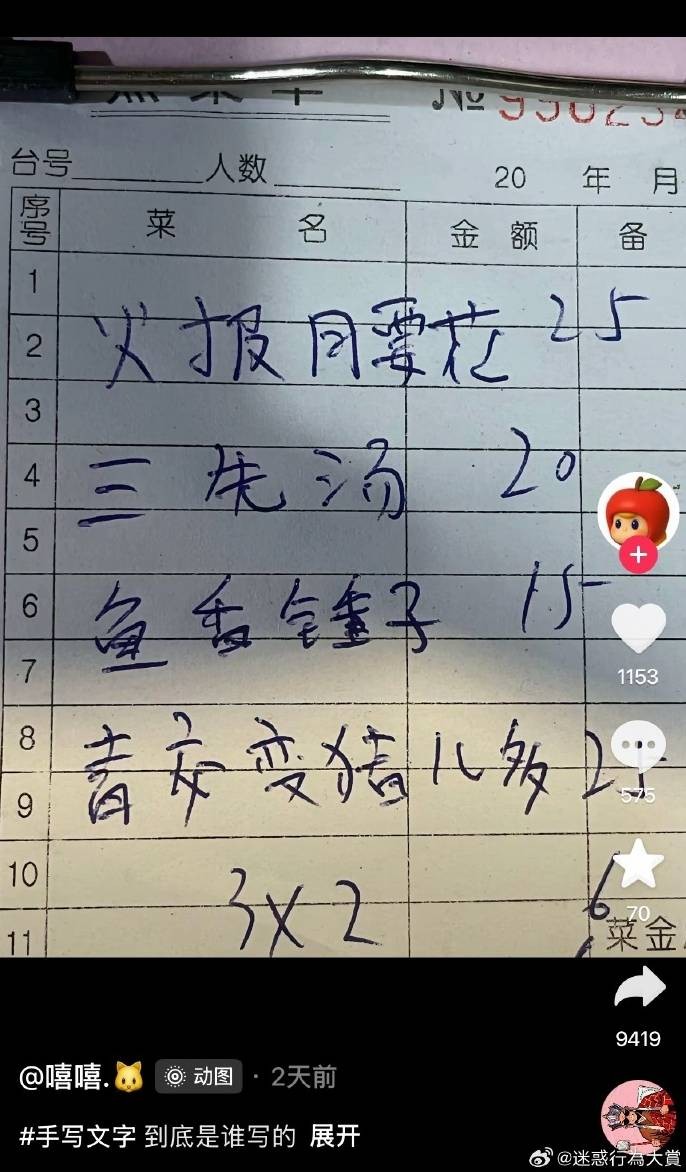 点菜单 № 990234
台号 人数 20 年 月
序号 菜 名 金 额 备
1
2 火报月要花 25
3
4 三先汤 20
5
6 鱼香锤子 15
7
8 青交变猪儿多 25
9
10 3x2 6
11 菜金
1153
575
70
9419
@嘻嘻.🐱 动图 · 2天前
#手写文字 到底是谁写的 展开
@迷惑行為大賞